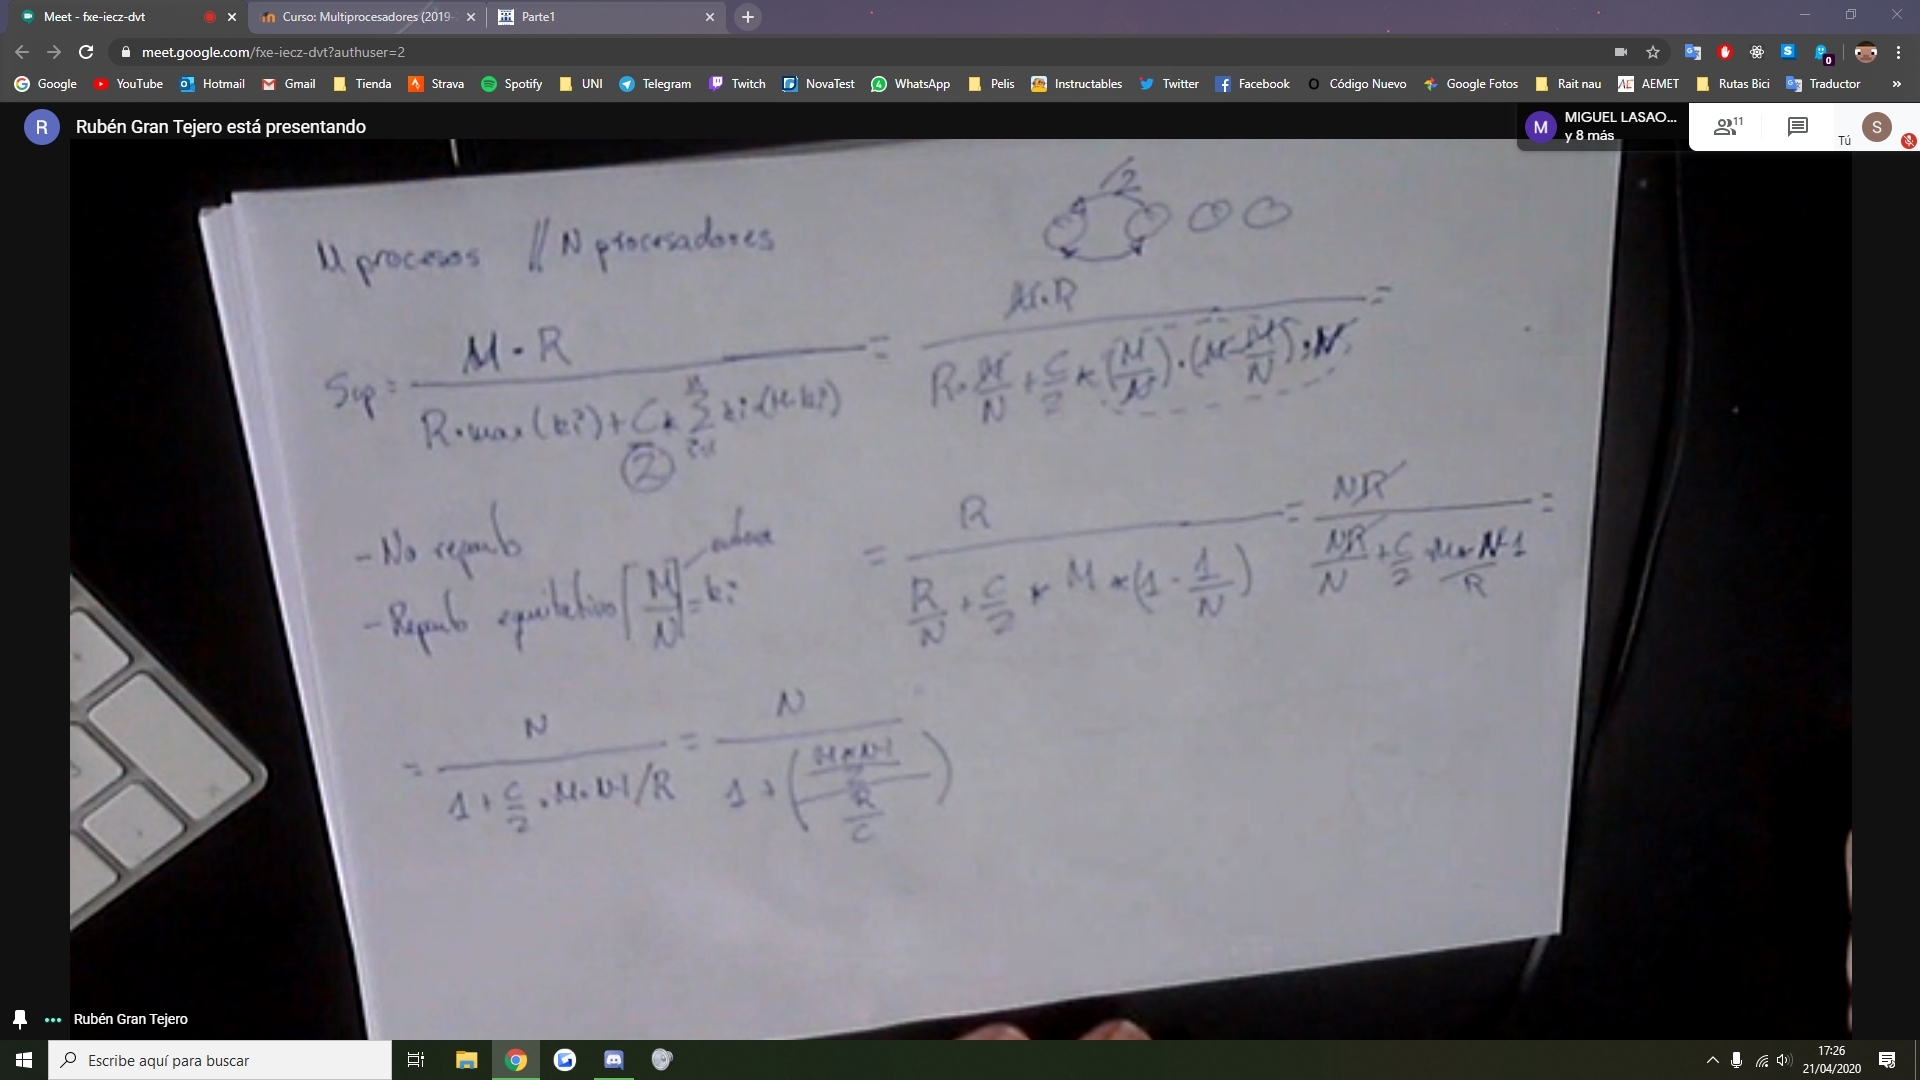 Meet - fxe-iecz-dvt
Curso: Multiprocesadores (2019-
Parte1
meet.google.com/fxe-iecz-dvt?authuser=2
0
Google YouTube Hotmail Gmail Tienda Strava Spotify UNI Telegram Twitch NovaTest WhatsApp Pelis Instructables Twitter Facebook Código Nuevo Google Fotos Rait nau AEMET Rutas Bici Traductor »
R Rubén Gran Tejero está presentando
M MIGUEL LASAO...
y 8 más
11
Tú
S
/2
M procesos // N procesadores
Sup = M · R / (R · max(ki) + C/2 * Σ i=1 ki · (M-ki)) = M·R / (R · M/N + C/2 * (M/N) · (M - M/N) · N) =
- No reparto
- Reparto equitativo [M/N] = ki
= R / (R/N + C/2 * M * (1 - 1/N)) = NR / (NR/N + C/2 · M · N-1 / R) =
= N / (1 + C/2 · M · N-1 / R) = N / (1 + (M*N-1 / 2 / R/C))
Rubén Gran Tejero
Escribe aquí para buscar
17:26
21/04/2020